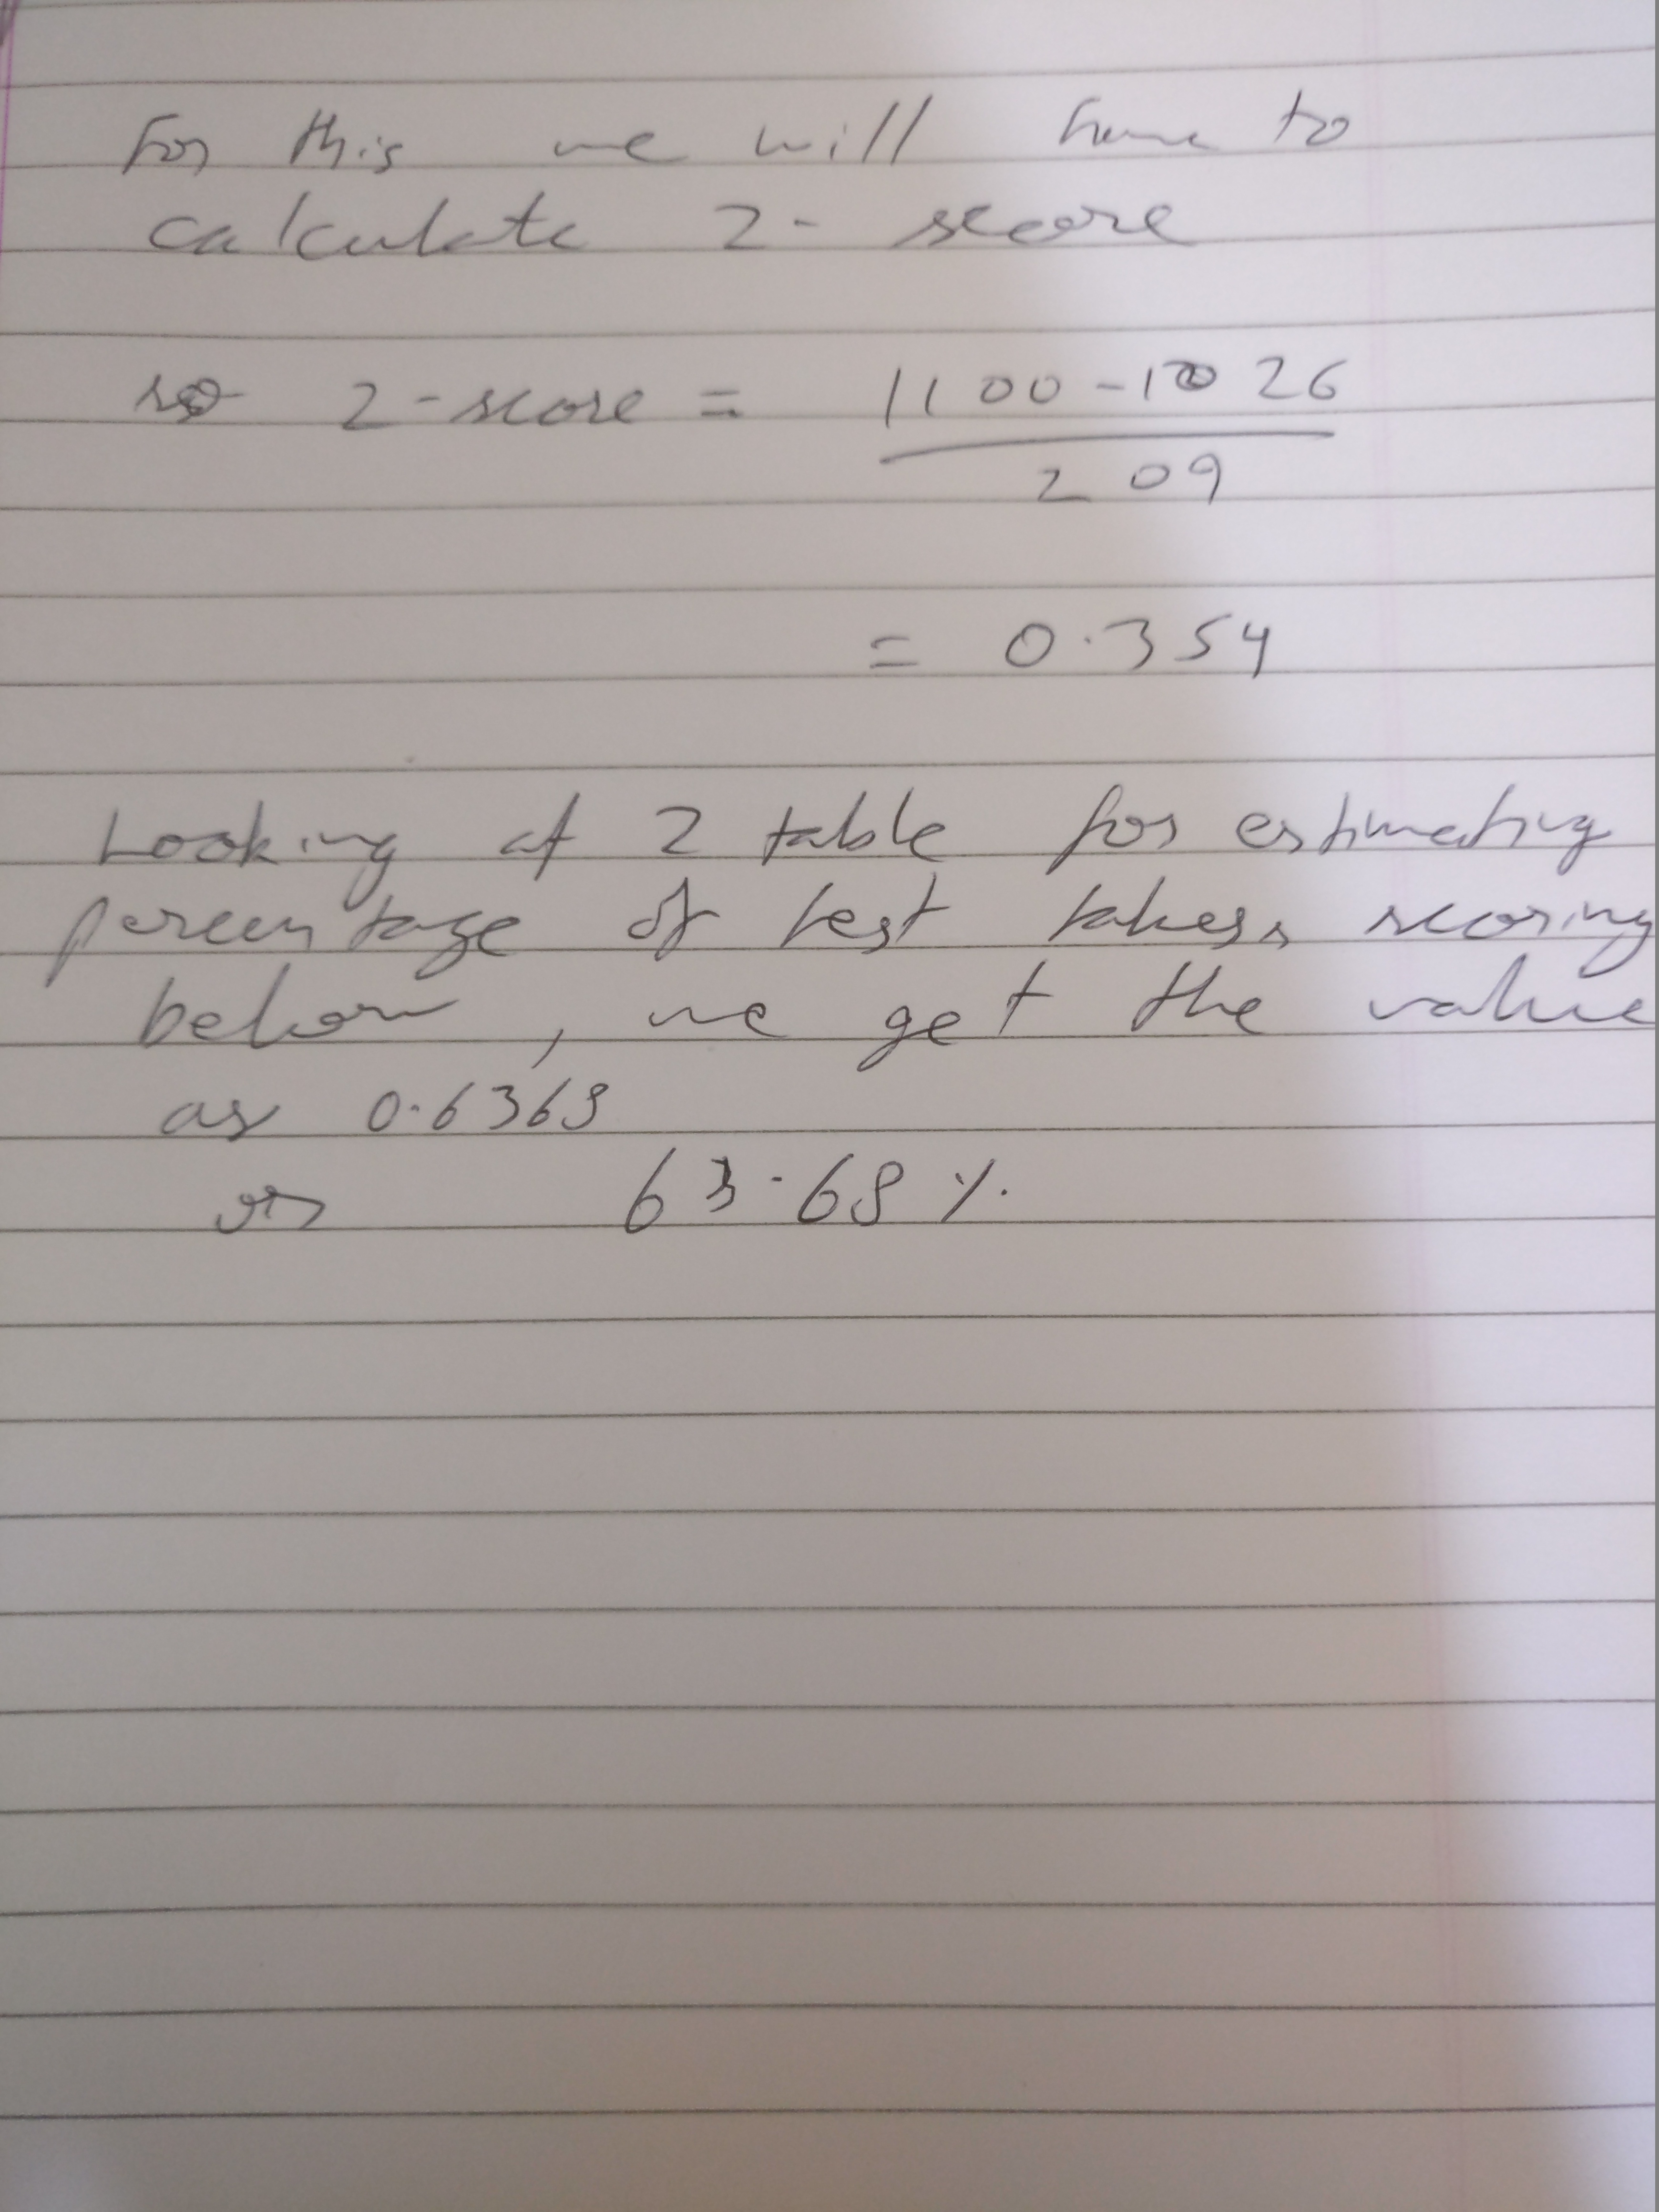 For this we will have to
calculate z- score
so z-score = 1100-1026
209
= 0.354
Looking at z table for estimating
percentage of test takers scoring
below, we get the value
as 0.6368
or 63.68 %.